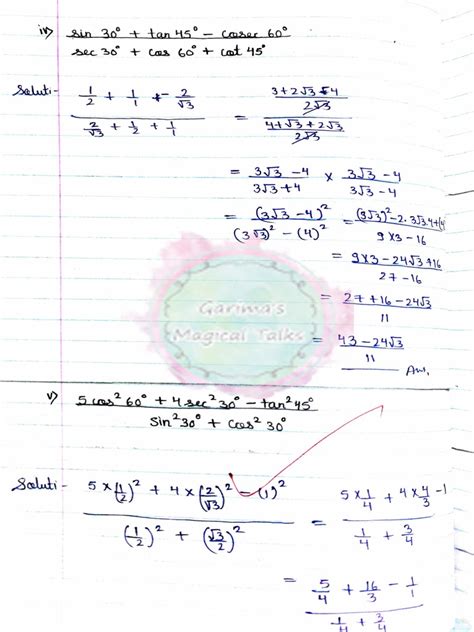 iv) sin 30° + tan 45° - cosec 60°
sec 30° + cos 60° + cot 45°
Soluti- 1/2 + 1/1 - 2/√3 = 3+2√3-4 / 2√3
2/√3 + 1/2 + 1/1 4+√3+2√3 / 2√3
= 3√3-4 / 3√3+4 × 3√3-4 / 3√3-4
= (3√3-4)² / (3√3)² - (4)² = (3√3)²-2.3√3.4+(4 / 9×3-16
= 9×3-24√3+16 / 27-16
= 27+16-24√3 / 11
= 43-24√3 / 11 Ans.
Garima's
Magical Talks
v) 5cos²60° + 4sec²30° - tan²45°
sin²30° + cos²30°
Soluti- 5×(1/2)² + 4×(2/√3)² - (1)² = 5×1/4 + 4×4/3 -1
(1/2)² + (√3/2)² 1/4 + 3/4
= 5/4 + 16/3 - 1/1
1/4 + 3/4